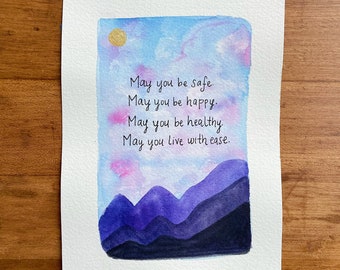 May you be safe.
May you be happy.
May you be healthy.
May you live with ease.